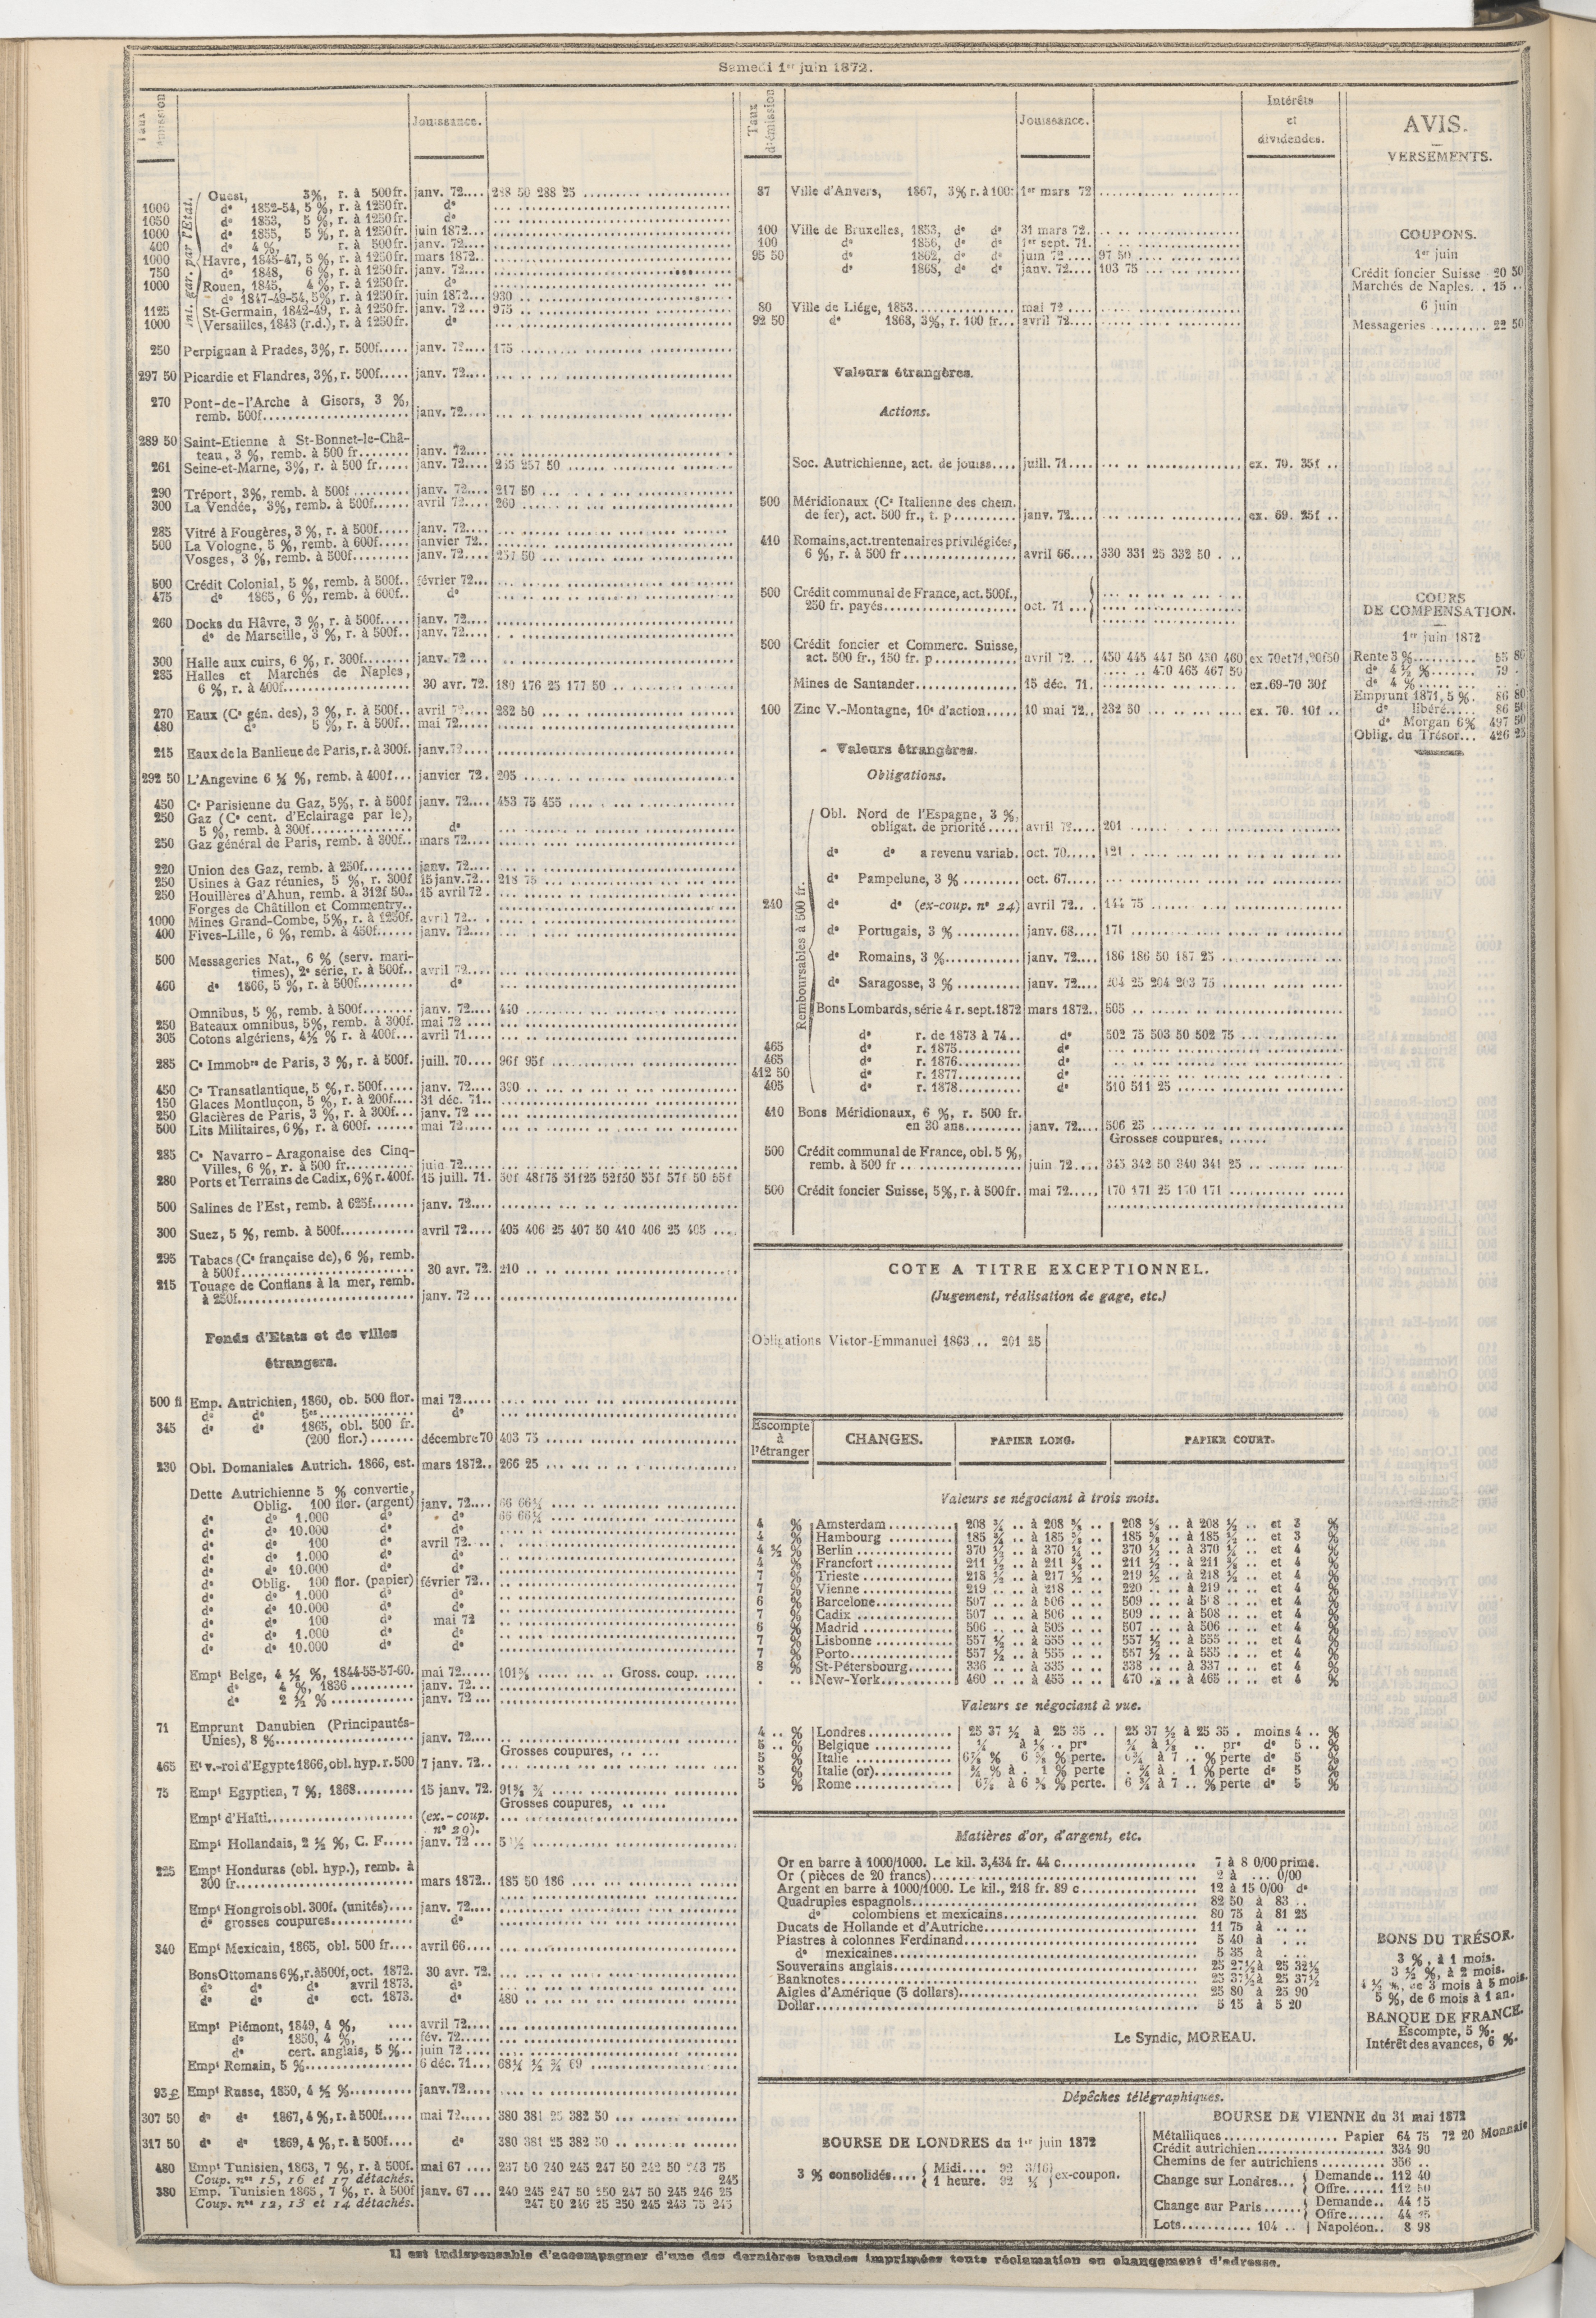 Samedi 1er juin 1872.
Taux d'émission
Jouissance.
Int. gar. par l'État.
Ouest, 3%, r. à 500fr. janv. 72.... 288 50 288 25
1000 do 1852-54, 5 %, r. à 1250fr. do
1050 do 1853, 5 %, r. à 1250fr. do
1000 do 1855, 5 %, r. à 1250fr. juin 1872...
400 do 4 %, r. à 500fr. janv. 72....
1000 Havre, 1845-47, 5 %, r. à 1250fr. mars 1872..
750 do 1848, 6 %, r. à 1250fr. janv. 72....
1000 Rouen, 1845, 4 %, r. à 1250fr. do
do 1847-49-54, 5%, r. à 1250fr. juin 1872... 930
1125 St-Germain, 1842-49, r. à 1250fr. janv. 72... 975
1000 Versailles, 1843 (r.d.), r. à 1250fr. do
250 Perpignan à Prades, 3%, r. 500f..... janv. 72.... 175
297 50 Picardie et Flandres, 3%, r. 500f..... janv. 72....
270 Pont-de-l'Arche à Gisors, 3 %,
remb. 500f.... janv. 72....
289 50 Saint-Etienne à St-Bonnet-le-Châ-
teau, 3 %, remb. à 500 fr........ janv. 72....
261 Seine-et-Marne, 3%, r. à 500 fr..... janv. 72.... 255 257 50
290 Tréport, 3%, remb. à 500f......... janv. 72.... 217 50
300 La Vendée, 3%, remb. à 500f...... avril 72.... 260
285 Vitré à Fougères, 3 %, r. à 500f..... janv. 72....
500 La Vologne, 5 %, remb. à 600f..... janvier 72..
Vosges, 3 %, remb. à 500f......... janv. 72.... 257 50
500 Crédit Colonial, 5 %, remb. à 500f.. février 72...
475 do 1865, 6 %, remb. à 600f.. do
260 Docks du Hâvre, 3 %, r. à 500f..... janv. 72....
do de Marseille, 3 %, r. à 500f.. janv. 72....
300 Halle aux cuirs, 6 %, r. 300f........ janv. 72...
285 Halles et Marchés de Naples,
6 %, r. à 400f.... 30 avr. 72. 180 176 25 177 50
270 Eaux (Ce gén. des), 3 %, r. à 500f.. avril 72.... 282 50
480 do 5 %, r. à 500f.. mai 72.....
215 Eaux de la Banlieue de Paris, r. à 300f. janv. 72....
292 50 L'Angevine 6 ¼ %, remb. à 400f... janvier 72. 205
450 Ce Parisienne du Gaz, 5%, r. à 500f janv. 72.... 453 75 455
250 Gaz (Ce cent. d'Eclairage par le),
5 %, remb. à 300f............... do
250 Gaz général de Paris, remb. à 300f.. mars 72....
220 Union des Gaz, remb. à 250f........ janv. 72....
250 Usines à Gaz réunies, 5 %, r. 300f 15 janv. 72.. 218 75
250 Houillères d'Ahun, remb. à 312f 50.. 15 avril 72.
Forges de Châtillon et Commentry..
1000 Mines Grand-Combe, 5%, r. à 1250f. avril 72...
400 Fives-Lille, 6 %, remb. à 450f...... janv. 72....
500 Messageries Nat., 6 % (serv. mari-
times), 2e série, r. à 500f.. avril 72....
460 do 1866, 5 %, r. à 500f......... do
Omnibus, 5 %, remb. à 500f........ janv. 72.... 440
250 Bateaux omnibus, 5%, remb. à 300f. mai 72....
305 Cotons algériens, 4½ % r. à 400f... avril 71....
285 Ce Immobre de Paris, 3 %, r. à 500f. juill. 70.... 96f 95f
450 Ce Transatlantique, 5 %, r. 500f..... janv. 72.... 390
150 Glaces Montluçon, 5 %, r. à 200f.... 31 déc. 71..
250 Glacières de Paris, 3 %, r. à 300f... janv. 72...
500 Lits Militaires, 6%, r. à 600f. ....... mai 72.....
285 Ce Navarro-Aragonaise des Cinq-
Villes, 6 %, r. à 500 fr.......... juin 72.....
280 Ports et Terrains de Cadix, 6% r. 400f. 15 juill. 71. 50f 48f75 51f25 52f50 55f 57f 50 55f
500 Salines de l'Est, remb. à 625f....... janv. 72....
300 Suez, 5 %, remb. à 500f............ avril 72.... 405 406 25 407 50 410 406 25 405
295 Tabacs (Ce française de), 6 %, remb.
à 500f.......................... 30 avr. 72. 210
215 Touage de Conflans à la mer, remb.
à 250f.......................... janv. 72...
Fonds d'Etats et de villes
étrangers.
500 fl Emp. Autrichien, 1860, ob. 500 flor. mai 72.....
do do 5es............... do
345 do do 1865, obl. 500 fr.
(200 flor.)....... décembre 70 403 75
230 Obl. Domaniales Autrich. 1866, est. mars 1872.. 266 25
Dette Autrichienne 5 % convertie,
Oblig. 100 flor. (argent) janv. 72.... 66 66¼
do do 1.000 do do 66 66¼
do do 10.000 do do
do do 100 do avril 72...
do do 1.000 do do
do do 10.000 do do
do Oblig. 100 flor. (papier) février 72..
do do 1.000 do do
do do 10.000 do do
do do 100 do mai 72
do do 1.000 do do
do do 10.000 do do
Empt Belge, 4 ½ %, 1844-55-57-60. mai 72..... Gross. coup.
do 4 %, 1836.......... janv. 72...
do 2 ½ %............ janv. 72...
71 Emprunt Danubien (Principautés-
Unies), 8 %.................... janv. 72....
Grosses coupures,
465 Et v.-roi d'Egypte 1866, obl. hyp. r. 500 7 janv. 72..
75 Empt Egyptien, 7 %, 1868......... 15 janv. 72.
Grosses coupures,
Empt d'Haïti..................... (ex.-coup.
no 29).
Empt Hollandais, 2 ½ %, C. F..... janv. 72...
225 Empt Honduras (obl. hyp.), remb. à
300 fr.......................... mars 1872.. 185 50 186
Empt Hongrois obl. 300f. (unités).... janv. 72....
do grosses coupures............ do
340 Empt Mexicain, 1865, obl. 500 fr.... avril 66....
Bons Ottomans 6%, r. à 500f, oct. 1872. 30 avr. 72.
do do do avril 1873. do
do do do oct. 1873. do 480
Empt Piémont, 1849, 4 %, .... avril 72....
do 1850, 4 %, .... fév. 72.....
do cert. anglais, 5 %.. juin 72....
Empt Romain, 5 %................ 6 déc. 71... 68¼ ½ ¾ 69
93 £ Empt Russe, 1850, 4 ½ %.......... janv. 72....
307 50 do do 1867, 4 %, r. à 500f..... mai 72..... 380 381 25 382 50
317 50 do do 1869, 4 %, r. à 500f.... do 380 381 25 382 50
480 Empt Tunisien, 1863, 7 %, r. à 500f. mai 67.... 237 50 240 245 247 50 242 50 243 75
Coup. nos 15, 16 et 17 détachés. 245
380 Emp. Tunisien 1865, 7 %, r. à 500f janv. 67... 240 245 247 50 250 247 50 245 246 25
Coup. nos 12, 13 et 14 détachés. 247 50 246 25 250 245 243 75 245
Taux d'émission
Jouissance.
Intérêts
et
dividendes.
87 Ville d'Anvers, 1867, 3% r. à 100: 1er mars 72
100 Ville de Bruxelles, 1853, do do 31 mars 72.
100 do 1856, do do 1er sept. 71.
95 50 do 1862, do do juin 72.... 97 50
do 1868, do do janv. 72.... 103 75
80 Ville de Liége, 1853................ mai 72....
92 50 do 1868, 3%, r. 100 fr... avril 72....
Valeurs étrangères.
Actions.
Soc. Autrichienne, act. de jouiss.... juill. 71.... ex. 70. 35f
500 Méridionaux (Ce Italienne des chem.
de fer), act. 500 fr., t. p.......... janv. 72.... ex. 69. 25f
410 Romains, act. trentenaires privilégiées,
6 %, r. à 500 fr................ avril 66.... 330 331 25 332 50
500 Crédit communal de France, act. 500f.,
250 fr. payés................... oct. 71...
500 Crédit foncier et Commerc. Suisse,
act. 500 fr., 150 fr. p............ avril 72... 450 445 447 50 450 460 ex 70 et 71, 20f50
470 465 467 50
Mines de Santander.............. 15 déc. 71. ex. 69-70 30f
100 Zinc V.-Montagne, 10e d'action..... 10 mai 72.. 232 50 ex. 70. 10f
Valeurs étrangères.
Obligations.
Remboursables à 500 fr.
Obl. Nord de l'Espagne, 3 %,
obligat. de priorité..... avril 72.... 201
do do a revenu variab. oct. 70..... 121
do Pampelune, 3 %......... oct. 67.....
240 do do (ex-coup. no 24) avril 72... 144 75
do Portugais, 3 %.......... janv. 68.... 171
do Romains, 3 %............ janv. 72.... 186 186 50 187 25
do Saragosse, 3 %.......... janv. 72.... 204 25 204 203 75
Bons Lombards, série 4 r. sept. 1872 mars 1872.. 505
do r. de 1873 à 74.. do 502 75 503 50 502 75
465 do r. 1875......... do
465 do r. 1876......... do
412 50 do r. 1877......... do
405 do r. 1878......... do 510 511 25
410 Bons Méridionaux, 6 %, r. 500 fr.
en 30 ans......... janv. 72.... 506 25
Grosses coupures,
500 Crédit communal de France, obl. 5 %,
remb. à 500 fr................ juin 72.... 345 342 50 340 341 25
500 Crédit foncier Suisse, 5%, r. à 500 fr. mai 72..... 170 171 25 170 171
COTE A TITRE EXCEPTIONNEL.
(Jugement, réalisation de gage, etc.)
Obligations Victor-Emmanuel 1863 .. 201 25
Escompte à l'étranger
CHANGES.
PAPIER LONG.
PAPIER COURT.
Valeurs se négociant à trois mois.
4 % Amsterdam.......... 208 à 208 208 à 208 ½ et 3 %
4 % Hambourg.......... 185 à 185 185 à 185 et 3 %
4 ½ % Berlin.............. 370 à 370 370 ½ à 370 et 4 %
4 % Francfort........... 211 à 211 211 ½ à 211 et 4 %
7 % Trieste............. 218 ½ à 217 ½ 219 ½ à 218 ½ et 4 %
7 % Vienne............. 219 à 218 220 à 219 et 4 %
6 % Barcelone........... 507 à 506 509 à 508 et 4 %
7 % Cadix.............. 507 à 506 509 à 508 et 4 %
6 % Madrid............. 506 à 505 507 à 506 et 4 %
7 % Lisbonne............ 557 ½ à 555 557 ½ à 555 et 4 %
7 % Porto............... 557 ½ à 555 557 ½ à 555 et 4 %
8 % St-Pétersbourg....... 336 à 335 338 à 337 et 4 %
New-York........... 460 à 455 470 à 465 et 4 %
Valeurs se négociant à vue.
4 .. % Londres............. 25 37 ½ à 25 35 .. 25 37 ½ à 25 35 . moins 4 .. %
5 .. % Belgique............ à ⅛ .. pr à ⅛ .. pr do 5 .. %
5 % Italie............... perte. à 7 .. % perte do 5 %
5 % Italie (or)........... % à . 1 % perte à . 1 % perte do 5 %
5 % Rome............... % perte. 6 ¾ à 7 .. % perte do 5 %
Matières d'or, d'argent, etc.
Or en barre à 1000/1000. Le kil. 3,434 fr. 44 c.................... 7 à 8 0/00 prime.
Or (pièces de 20 francs)...................................... 2 à ... 0/00
Argent en barre à 1000/1000. Le kil., 218 fr. 89 c................ 12 à 15 0/00 do
Quadruples espagnols........................................ 82 50 à 83 ..
do colombiens et mexicains........................... 80 75 à 81 25
Ducats de Hollande et d'Autriche.............................. 11 75 à
Piastres à colonnes Ferdinand................................. 5 40 à
do mexicaines........................................... 5 35 à
Souverains anglais........................................... 25 27½ à 25 32½
Banknotes.................................................. 25 37½ à 25 37½
Aigles d'Amérique (5 dollars).................................. 25 80 à 25 90
Dollar...................................................... 5 15 à 5 20
Le Syndic, MOREAU.
Dépêches télégraphiques.
BOURSE DE LONDRES du 1er juin 1872
3 % consolidés.... Midi.... 92 3/16 ex-coupon.
1 heure. 92 ¼
BOURSE DE VIENNE du 31 mai 1872
Métalliques.................. Papier 64 75 72 20 Monnaie
Crédit autrichien.................. 334 90
Chemins de fer autrichiens.......... 356 ..
Change sur Londres... Demande.. 112 40
Offre...... 112 50
Change sur Paris...... Demande.. 44 15
Offre...... 44 25
Lots........... 104 .. Napoléon.. 8 98
AVIS.
VERSEMENTS.
COUPONS.
1er juin
Crédit foncier Suisse 20 50
Marchés de Naples. . 15 ..
6 juin
Messageries ........ 22 50
COURS
DE COMPENSATION.
1er juin 1872
Rente 3 %.......... 55 80
do 4 ½ %....... 79 .
do 4 %.......
Emprunt 1871, 5 %. 86 80
do libéré..... 86 50
do Morgan 6% 497 50
Oblig. du Trésor... 426 25
BONS DU TRÉSOR.
3 %, à 1 mois.
3 ½ %, à 2 mois.
4 ½ %, de 3 mois à 5 mois.
5 %, de 6 mois à 1 an.
BANQUE DE FRANCE.
Escompte, 5 %.
Intérêt des avances, 6 %.
Il est indispensable d'accompagner d'une des dernières bandes imprimées toute réclamation ou changement d'adresse.